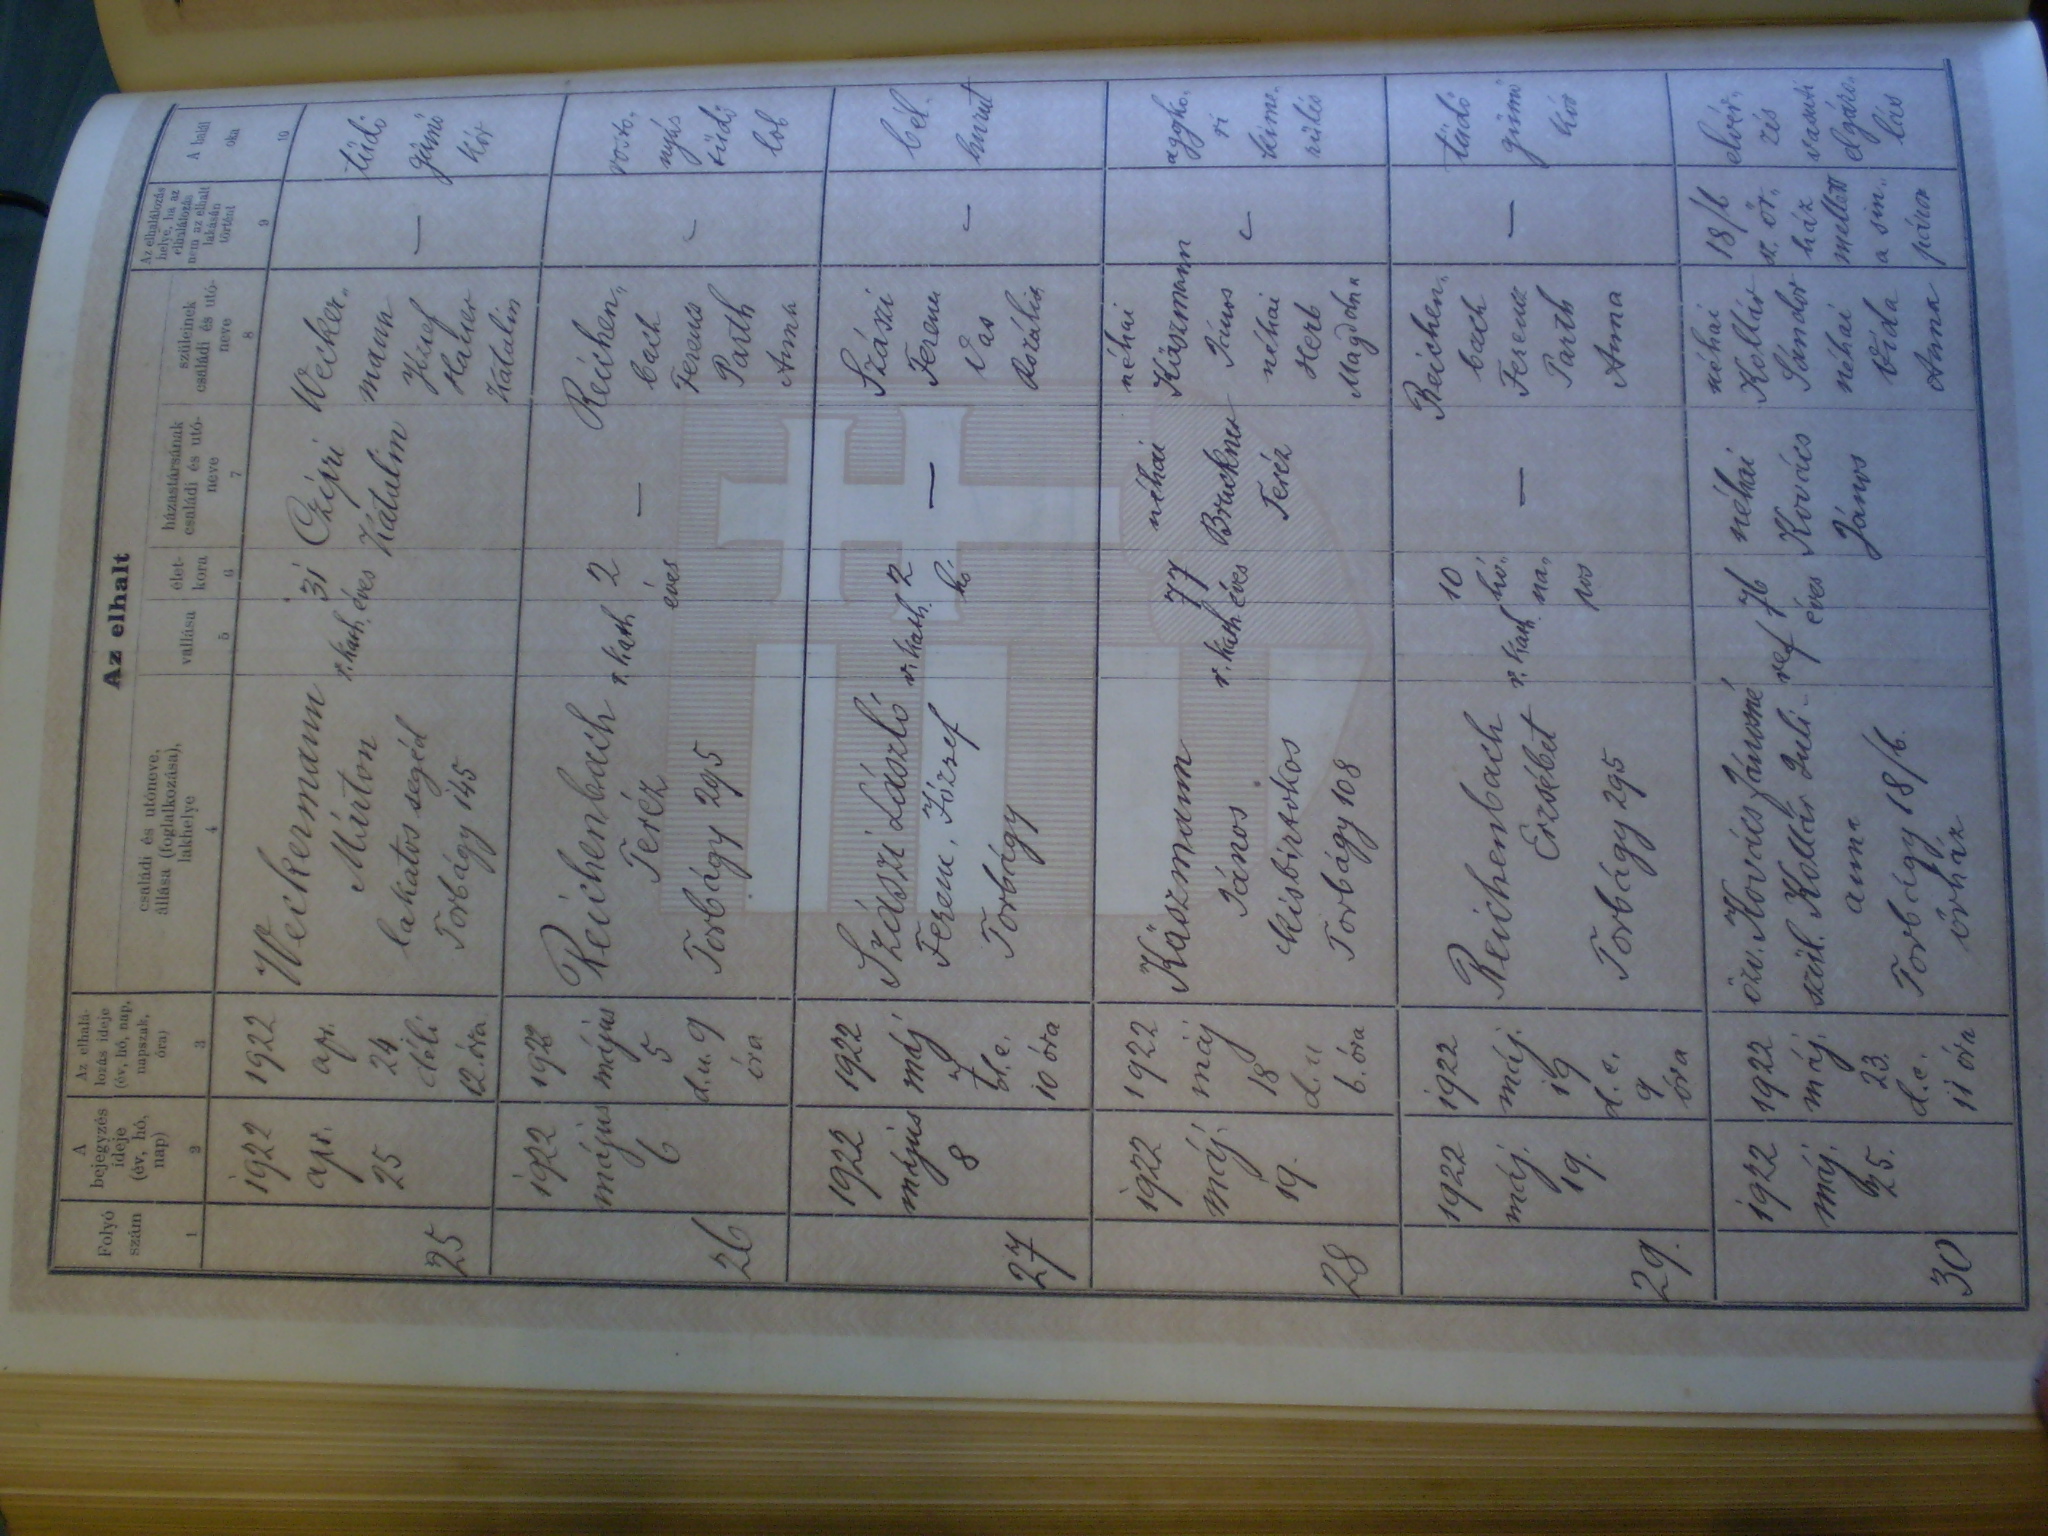 Az elhalt
Folyó
szám
A
bejegyzés
ideje
(év, hó,
nap)
Az elhalá-
lozás ideje
(év, hó, nap,
napszak,
óra)
családi és utóneve,
állása (foglalkozása),
lakhelye
vallása
élet-
kora
házastársának
családi és utó-
neve
szüleinek
családi és utó-
neve
Az elhalálozás
helye, ha az
elhalálozás
nem az elhalt
lakásán
történt
A halál
oka
1
2
3
4
5
6
7
8
9
10
25
1922
apr.
25
1922
apr.
24
déli
12.óra
Weckermann
Márton
lakatos segéd
Torbágy 145
r. kath.
31
éves
Czípri
Katalin
Wecker-
mann
József
Hauser
Katalin
—
tüdő
gümő
kór
26
1922
május
6
1922
május
5
d.u. 9
óra
Reichenbach
Teréz
Torbágy 295
r. kath
2
éves
—
Reichen-
bach
Ferenc
Parth
Anna
—
rosto-
nyás
tüdő
lob
27
1922
május
8
1922
máj
7
d.e.
10 óra
Szászi László
Ferenc, József
Torbágy
r. kath.
2
hó
—
Szászi
Ferenc
Vas
Rozália
—
bél-
hurut
28
1922
máj.
19.
1922
máj
18
d.u
6. óra
Kászmann
János
kisbirtokos
Torbágy 108
r. kath
77
éves
néhai
Bruckner
Teréz
néhai
Kászmann
János
néhai
Herb
Magdolna
—
aggko-
ri
kime-
rülés
29.
1922
máj.
19.
1922
máj.
19
d. e.
9
óra
Reichenbach
Erzsébet
Torbágy 295
r. kath
10
hó-
na-
pos
—
Reichen-
bach
Ferenc
Parth
Anna
—
tüdő
gümő
kór
30
1922
máj.
25.
1922
máj.
23.
d.e.
11 óra
özv. Kovács Jánosné
szül. Kollár Juli-
anna
Torbágy 18/b.
őrház
ref
76
éves
néhai
Kovács
János
néhai
Kollár
Sándor
néhai
Vida
Anna
18/b
sz. őr-
ház
mellett
a sín-
páron
elvér-
zés
vasúti
elgázo-
lás